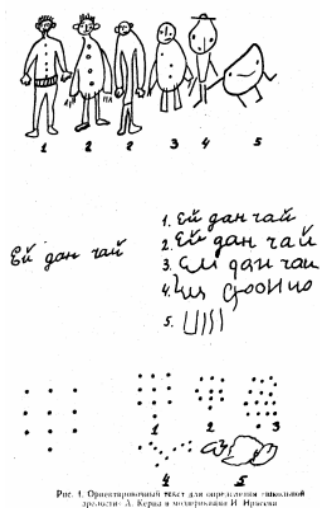 1 2 2 3 4 5
1. Ей дан чай
Ей дан чай
2. Ей дан чай
3. дан чаи
4.
5.
1 2 3
4 5
Рис. 1. Ориентировочный текст для определения «школьной
зрелости» А. Керна в модификации И. Ирасека